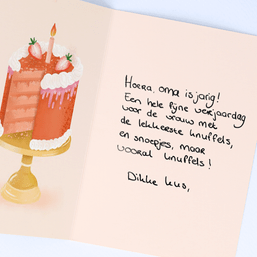 Hoera, oma is jarig!
Een hele fijne verjaardag
voor de vrouw met
de lekkerste knuffels,
en snoepjes, maar
vooral knuffels!
Dikke kus,